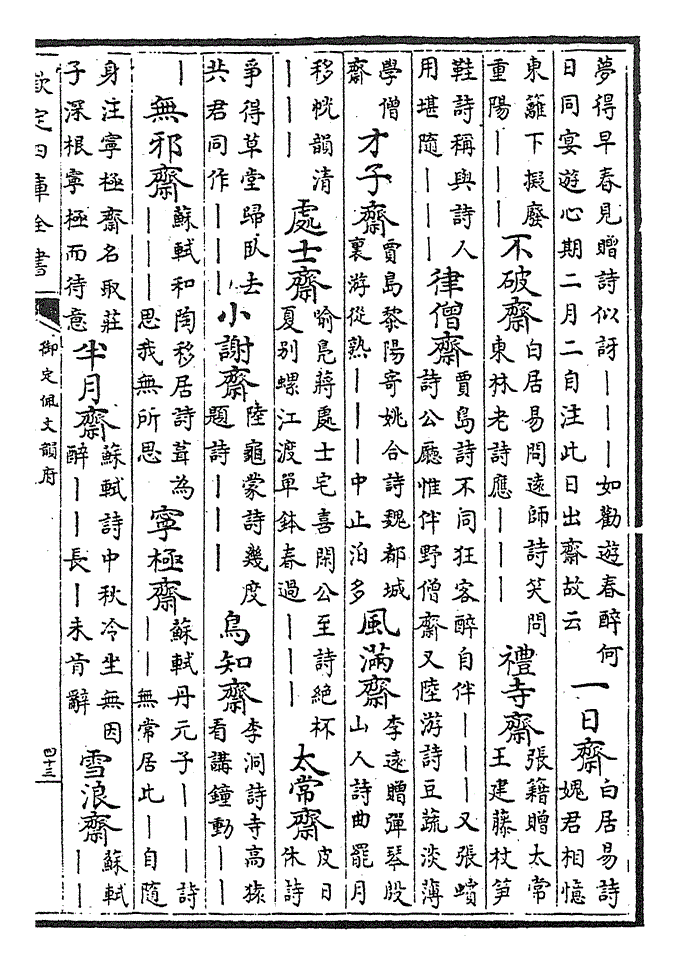 夢得早春見贈詩似訝———如勸遊春醉何
日同宴遊心期二月二自注此日出齋故云
一日齋
白居易詩
媿君相憶
東籬下擬廢
重陽———
不破齋
白居易問遠師詩笑問
東林老詩應———
禮寺齋
張籍贈太常
王建藤杖笋
鞋詩稱與詩人
用堪隨———
律僧齋
賈島詩不同狂客醉自伴———又張蠙
詩公廳惟伴野僧齋又陸游詩豆蔬淡薄
學僧
齋
才子齋
賈島黎陽寄姚合詩魏都城
裏游從熟———中止泊多
風滿齋
李遠贈彈琴殷
山人詩曲罷月
移幌韻清
———
處士齋
喻鳧蔣處士宅喜閑公至詩絕杯
夏別螺江渡單鉢春過———
太常齋
皮日
休詩
爭得草堂歸臥去
共君同作———
小謝齋
陸龜蒙詩幾度
題詩———
鳥知齋
李洞詩寺高猿
看講鐘動——
—
無邪齋
蘇軾和陶移居詩葺為
———思我無所思
寧極齋
蘇軾丹元子———詩
——無常居此—自隨
身注寧極齋名取莊
子深根寧極而待意
半月齋
蘇軾詩中秋冷坐無因
醉——長—未肯辭
雪浪齋
蘇軾
——
欽定四庫全書
御定佩文韻府
四十三